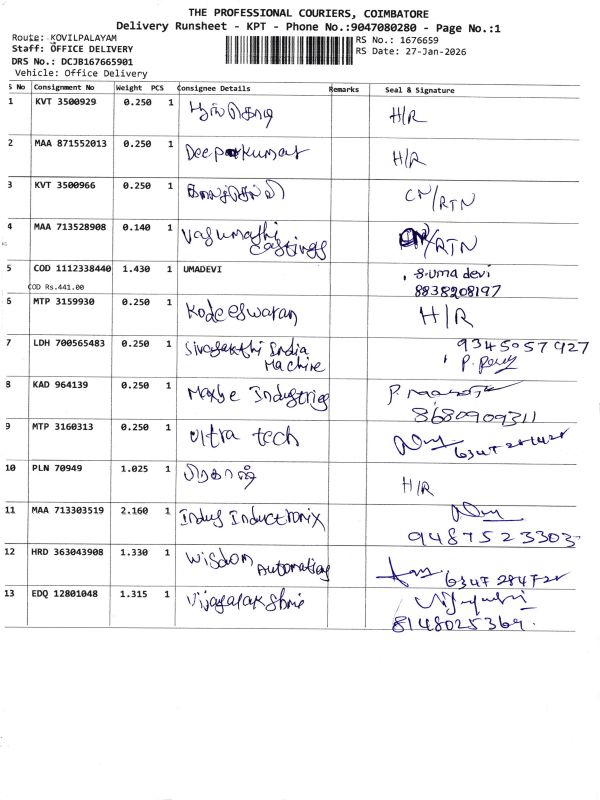 THE PROFESSIONAL COURIERS, COIMBATORE
Delivery Runsheet - KPT - Phone No.:9047080280 - Page No.:1
Route: KOVILPALAYAM
Staff: OFFICE DELIVERY
DRS No.: DCJB167665901
Vehicle: Office Delivery
RS No.: 1676659
RS Date: 27-Jan-2026
S No Consignment No Weight PCS Consignee Details Remarks Seal & Signature
1 KVT 3500929 0.250 1 H/R
2 MAA 871552013 0.250 1 Deepakkumar H/R
3 KVT 3500966 0.250 1 CN/RTN
4 MAA 713528908 0.140 1 Vasumathi Castings /RTN
5 COD 1112338440 1.430 1 UMADEVI S.Uma devi
COD Rs.441.00 8838208197
6 MTP 3159930 0.250 1 Kodeeswaran H/R
7 LDH 700565483 0.250 1 Sivasakthi India Machine 9345057927
8 KAD 964139 0.250 1 Industries 8680909311
9 MTP 3160313 0.250 1 Ultra tech
10 PLN 70949 1.025 1 பிரகாஷ் H/R
11 MAA 713303519 2.160 1 Indus Inductronix 9487523303
12 HRD 363043908 1.330 1 Wisdom Automation
13 EDQ 12801048 1.315 1 Vijayalakshmi 8148025369.